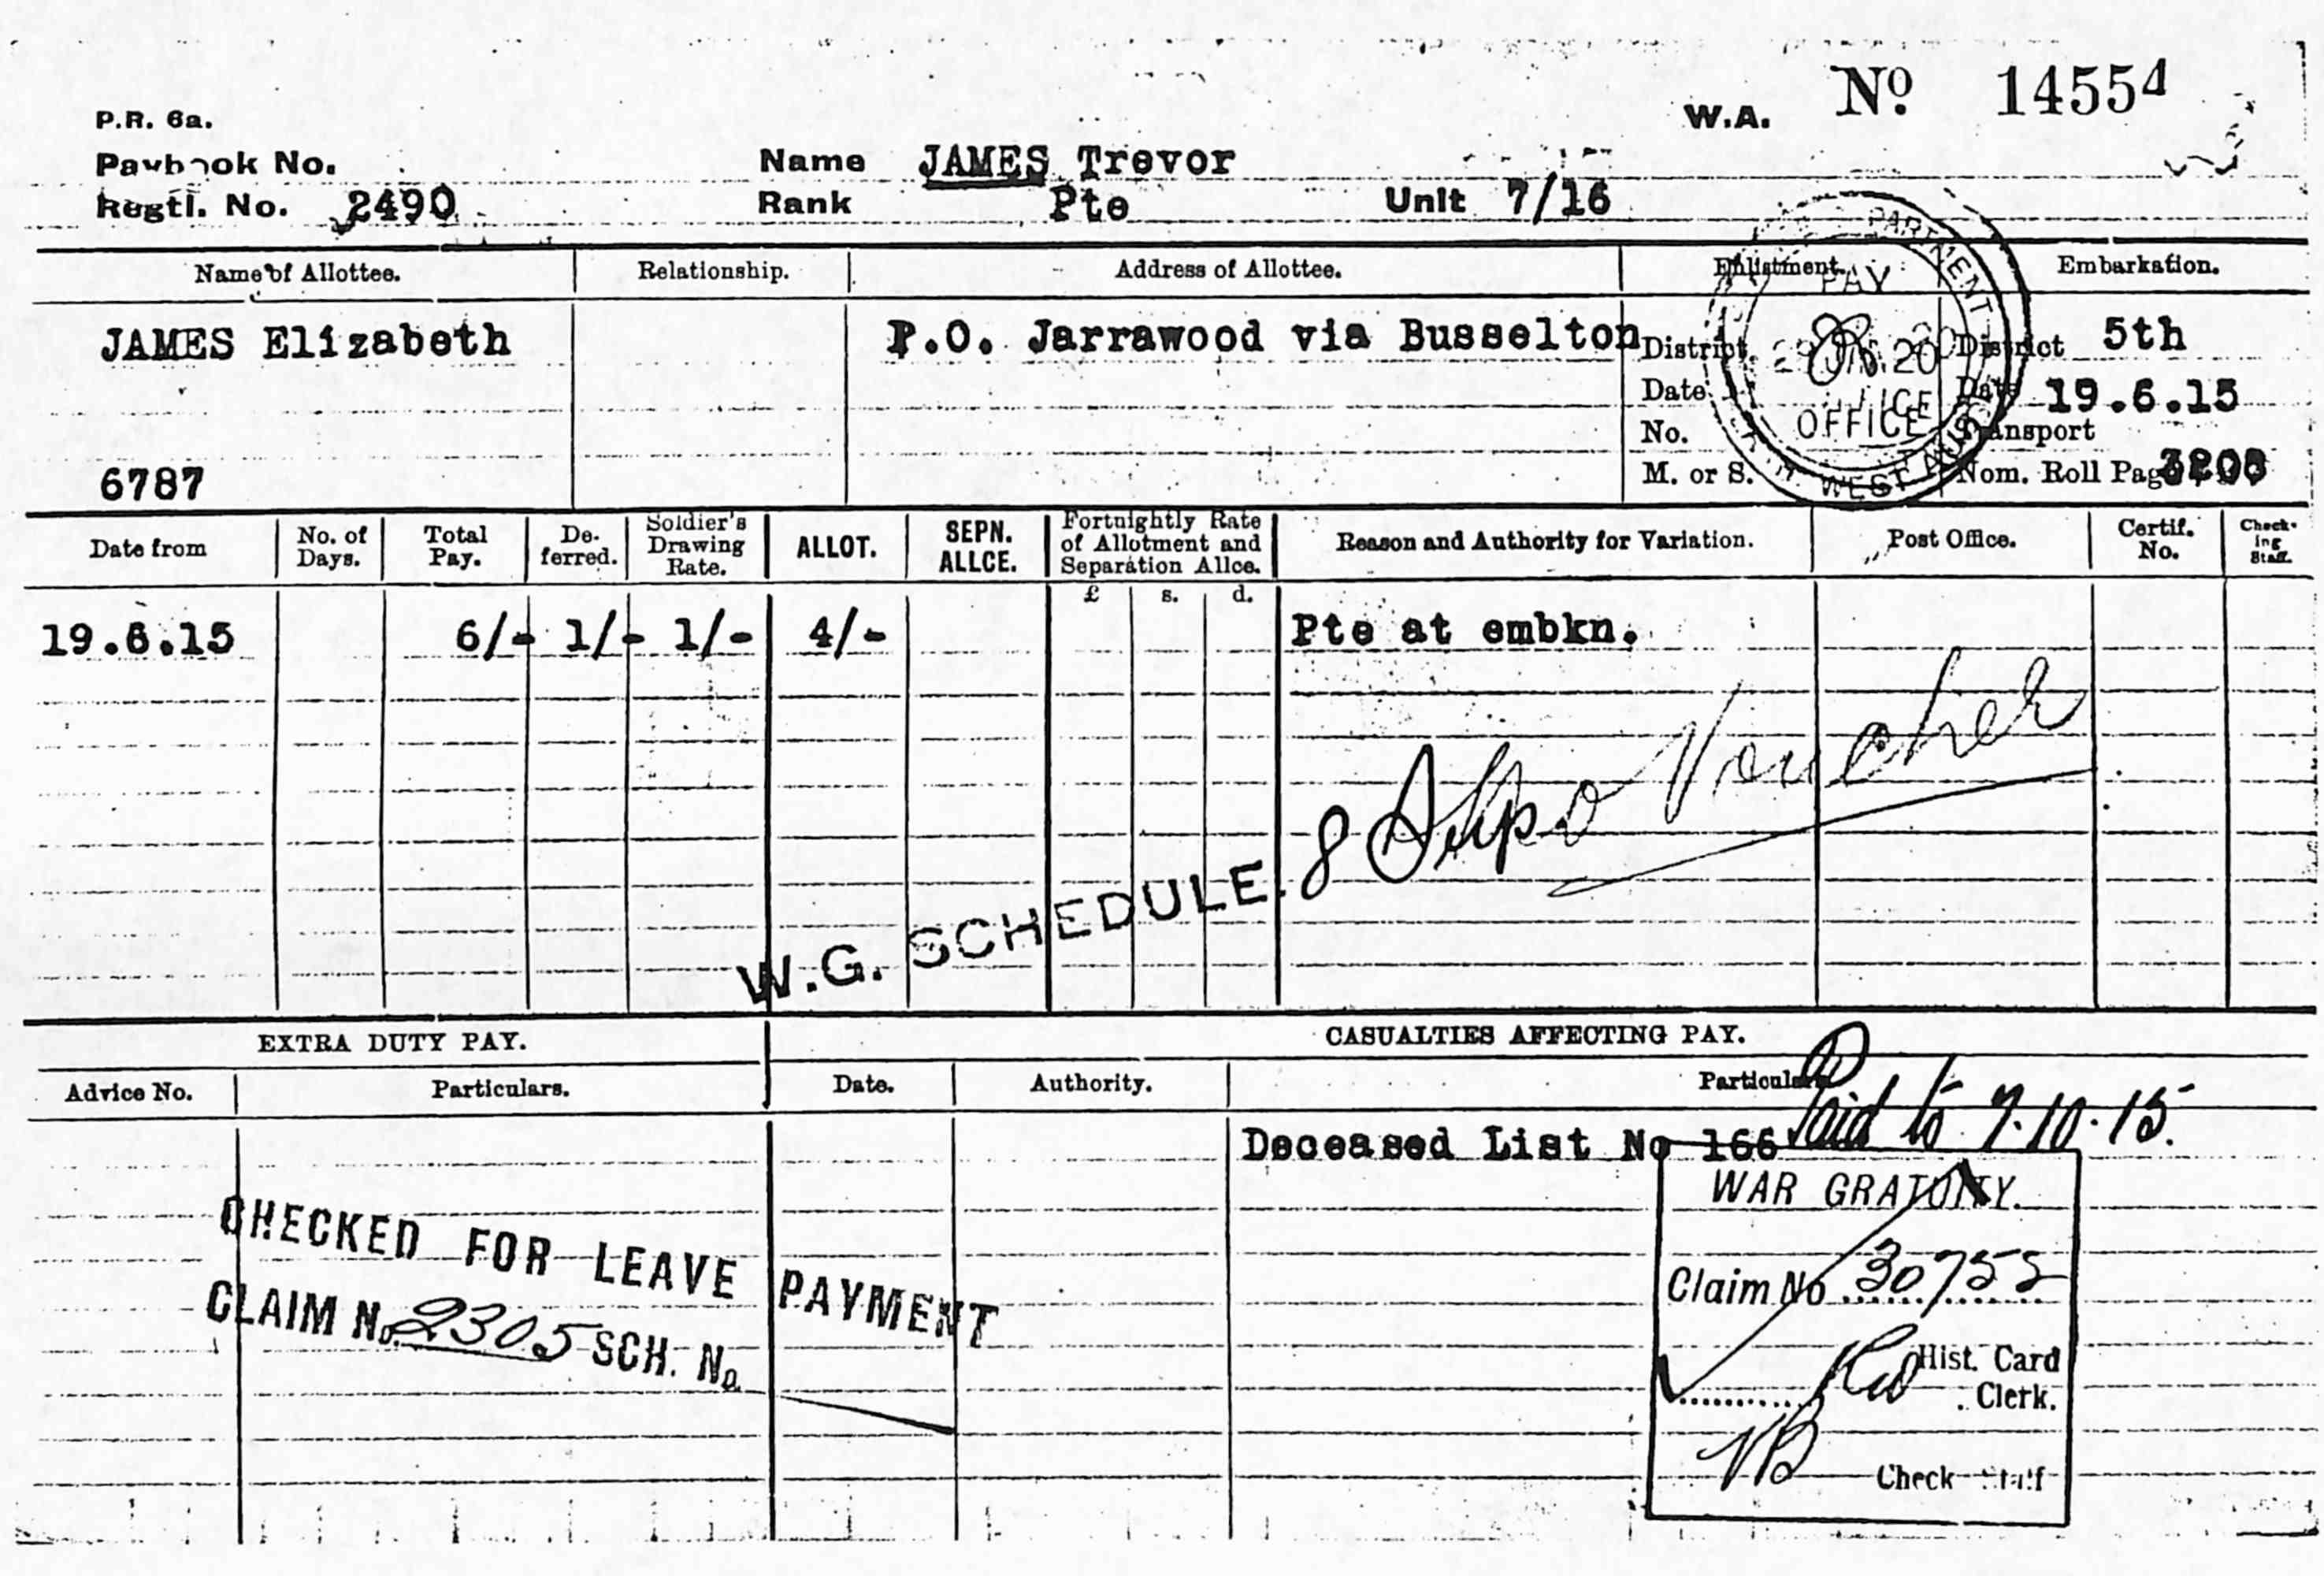 W.A. No 14554
P.R. 6a.
Paybook No. Name JAMES Trevor
Regtl. No. 2490 Rank Pte Unit 7/16
Name of Allottee. Relationship. Address of Allottee. Enlistment. Embarkation.
JAMES Elizabeth P.O. Jarrawood via Busselton District District 5th
Date Date 19.6.15
No. Transport
6787 M. or S. Nom. Roll Page
PAY
OFFICE
WEST
Date from No. of Days. Total Pay. De-ferred. Soldier's Drawing Rate. ALLOT. SEPN. ALLCE. Fortnightly Rate of Allotment and Separation Allce. Reason and Authority for Variation. Post Office. Certif. No. Check-ing Staff.
£ s. d.
19.6.15 6/- 1/- 1/- 4/- Pte at embkn.
W.G. SCHEDULE. 8 Voucher
EXTRA DUTY PAY. CASUALTIES AFFECTING PAY.
Advice No. Particulars. Date. Authority. Particulars
Deceased List No 166 Paid to 7.10.15.
CHECKED FOR LEAVE PAYMENT
CLAIM No. 2305 SCH. No.
WAR GRATUITY.
Claim No 30755
Hist. Card
Clerk.
Check Staff